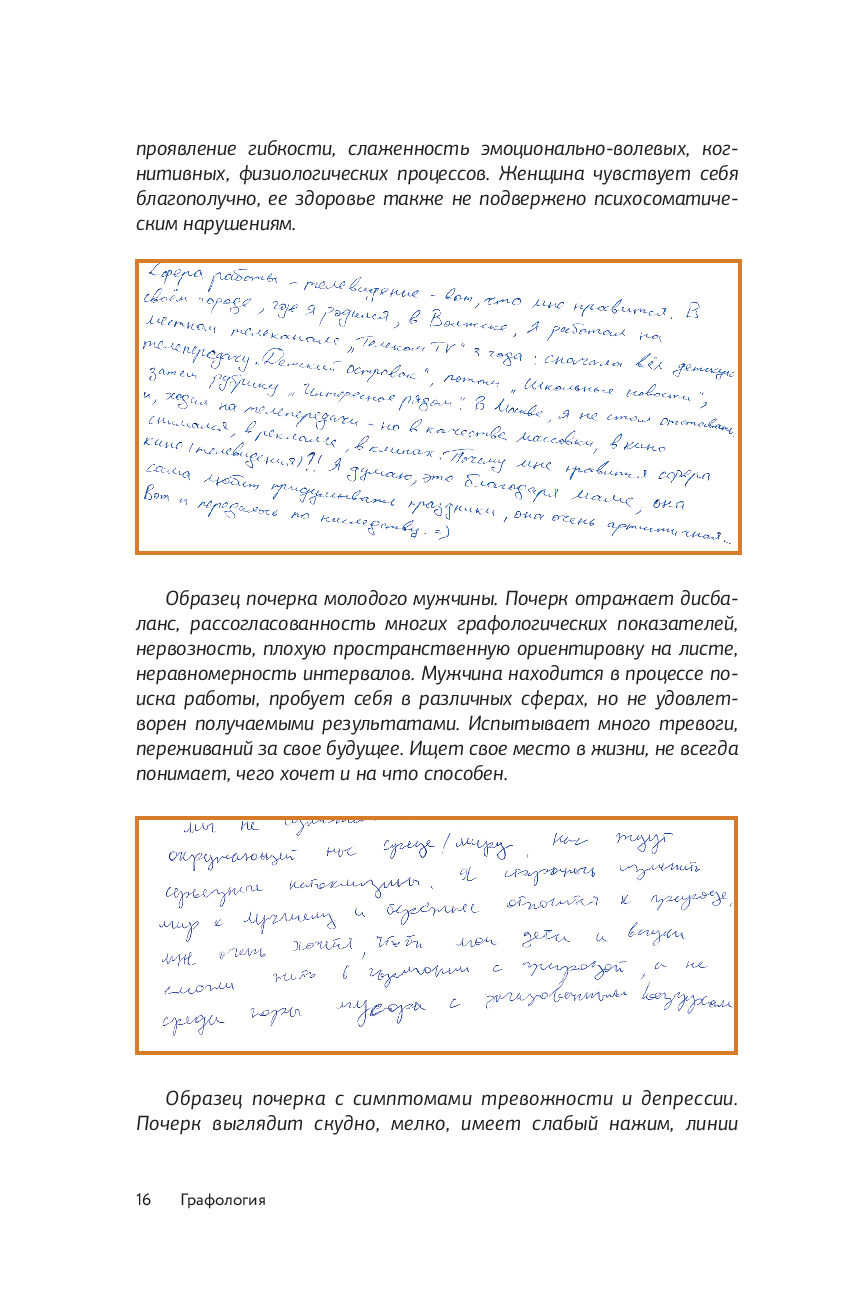 проявление гибкости, слаженность эмоционально-волевых, ког-
нитивных, физиологических процессов. Женщина чувствует себя
благополучно, ее здоровье также не подвержено психосоматиче-
ским нарушениям.
Сфера работы – телевидение – вот, что мне нравится. В
своём городе, где я родился, в Волжске, я работал на
местном телеканале „Телеком TV" 3 года: сначала вёл детскую
телепередачу „Детский островок", потом „Школьные новости",
затем рубрику „Интересное рядом". В Москве, я не стал отставать
и, ходил на телепередачи – но в качестве массовки, в кино
снимался, в рекламе, в клипах. Почему мне нравится сфера
кино (телевидения)?! Я думаю, это благодаря маме, она
сама любит придумывать праздники, она очень артистичная...
Вот и передалось по наследству. =)
Образец почерка молодого мужчины. Почерк отражает дисба-
ланс, рассогласованность многих графологических показателей,
нервозность, плохую пространственную ориентировку на листе,
неравномерность интервалов. Мужчина находится в процессе по-
иска работы, пробует себя в различных сферах, но не удовлет-
ворен получаемыми результатами. Испытывает много тревоги,
переживаний за свое будущее. Ищет свое место в жизни, не всегда
понимает, чего хочет и на что способен.
мы не
окружающий нас среде/миру, нас ждут
серьезные катаклизмы. Я стараюсь изменить
мир к лучшему и бережнее относится к природе,
мне очень хочется, чтобы мои дети и внуки
смогли жить в гармонии с природой, а не
среди горы мусора с загазованным воздухом
Образец почерка с симптомами тревожности и депрессии.
Почерк выглядит скудно, мелко, имеет слабый нажим, линии
16 Графология